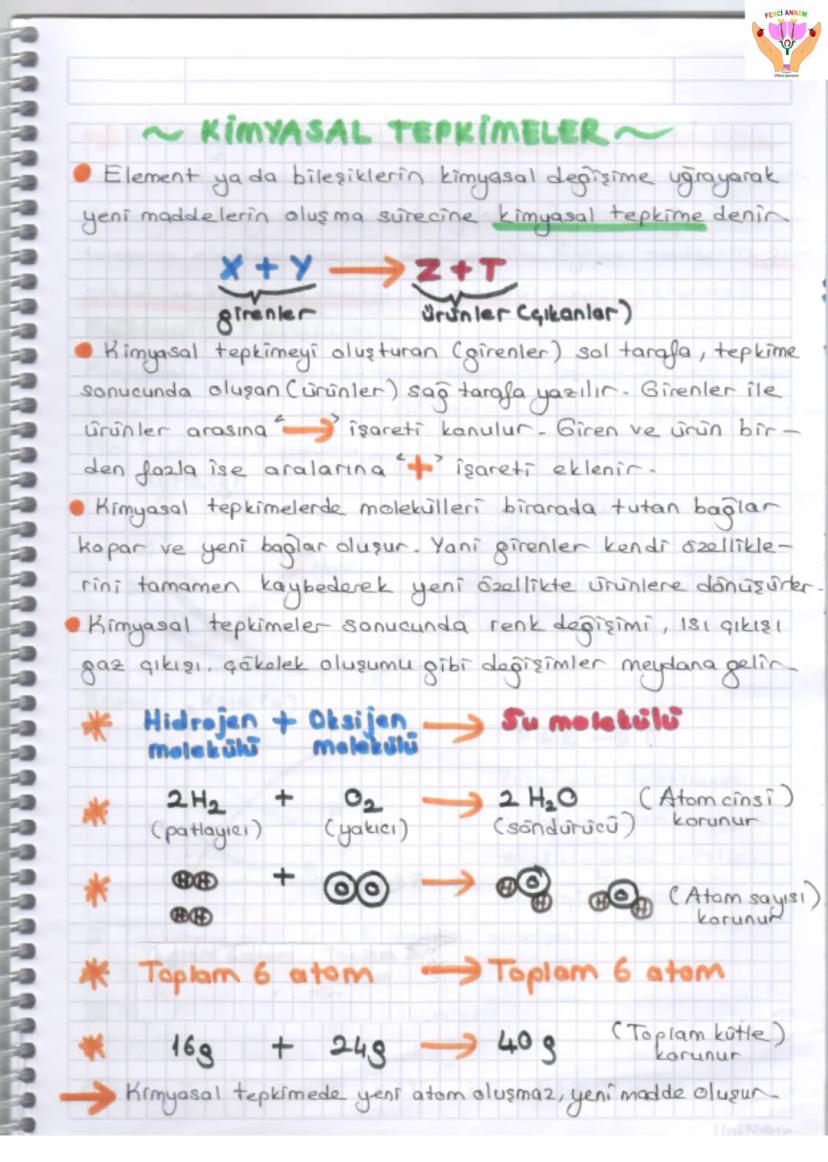 FENCİ ANNEM
~ KİMYASAL TEPKİMELER ~
• Element ya da bileşiklerin kimyasal değişime uğrayarak
yeni maddelerin oluşma sürecine kimyasal tepkime denir
X + Y → Z + T
girenler ürünler (çıkanlar)
• Kimyasal tepkimeyi oluşturan (girenler) sol tarafa, tepkime
sonucunda oluşan (ürünler) sağ tarafa yazılır. Girenler ile
ürünler arasına "→" işareti konulur. Giren ve ürün bir-
den fazla ise aralarına "+" işareti eklenir.
• Kimyasal tepkimelerde molekülleri birarada tutan bağlar
kopar ve yeni bağlar oluşur. Yani girenler kendi özellikle-
rini tamamen kaybederek yeni özellikte ürünlere dönüşürler.
• Kimyasal tepkimeler sonucunda renk değişimi, ısı çıkışı
gaz çıkışı, çökelek oluşumu gibi değişimler meydana gelir
* Hidrojen + Oksijen → Su molekülü
molekülü molekülü
* 2H₂ + O₂ → 2 H₂O (Atom cinsi)
(patlayıcı) (yakıcı) (söndürücü) korunur
* HH + OO → HOH HOH (Atom sayısı)
HH korunur
* Toplam 6 atom → Toplam 6 atom
* 16g + 24g → 40 g (Toplam kütle)
korunur
→ Kimyasal tepkimede yeni atom oluşmaz, yeni madde oluşur.
UniNote